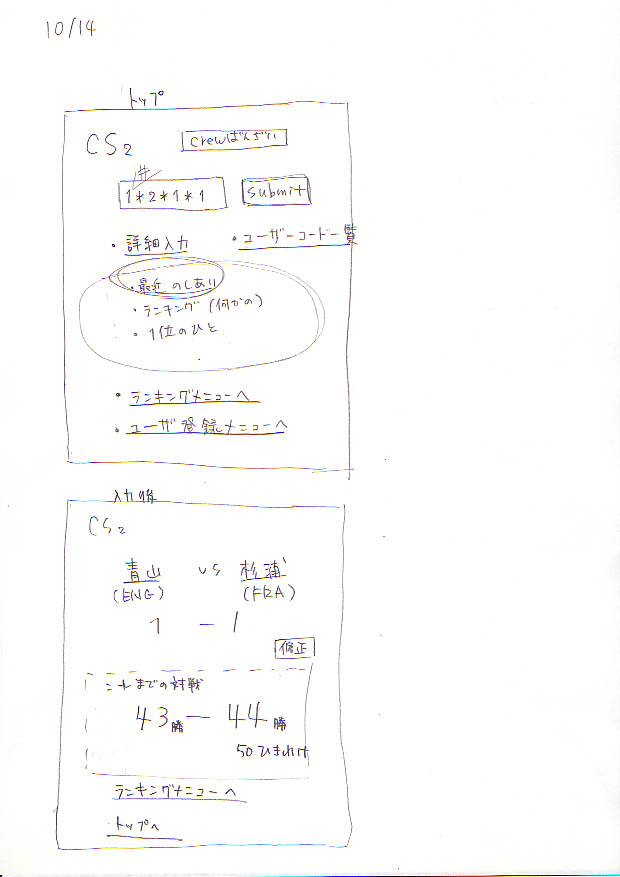 10/14
トップ
CS2
crewばんざい
#
1*2*1*1
submit
・詳細入力
・ユーザーコード一覧
・最近のしあい
・ランキング(何かの)
・1位のひと
・ランキングメニューへ
・ユーザ登録メニューへ
入力後
CS2
青山 vs 杉浦
(ENG) (FRA)
1 － 1
修正
これまでの対戦
43勝 － 44勝
50ひきわけ
ランキングメニューへ
トップへ